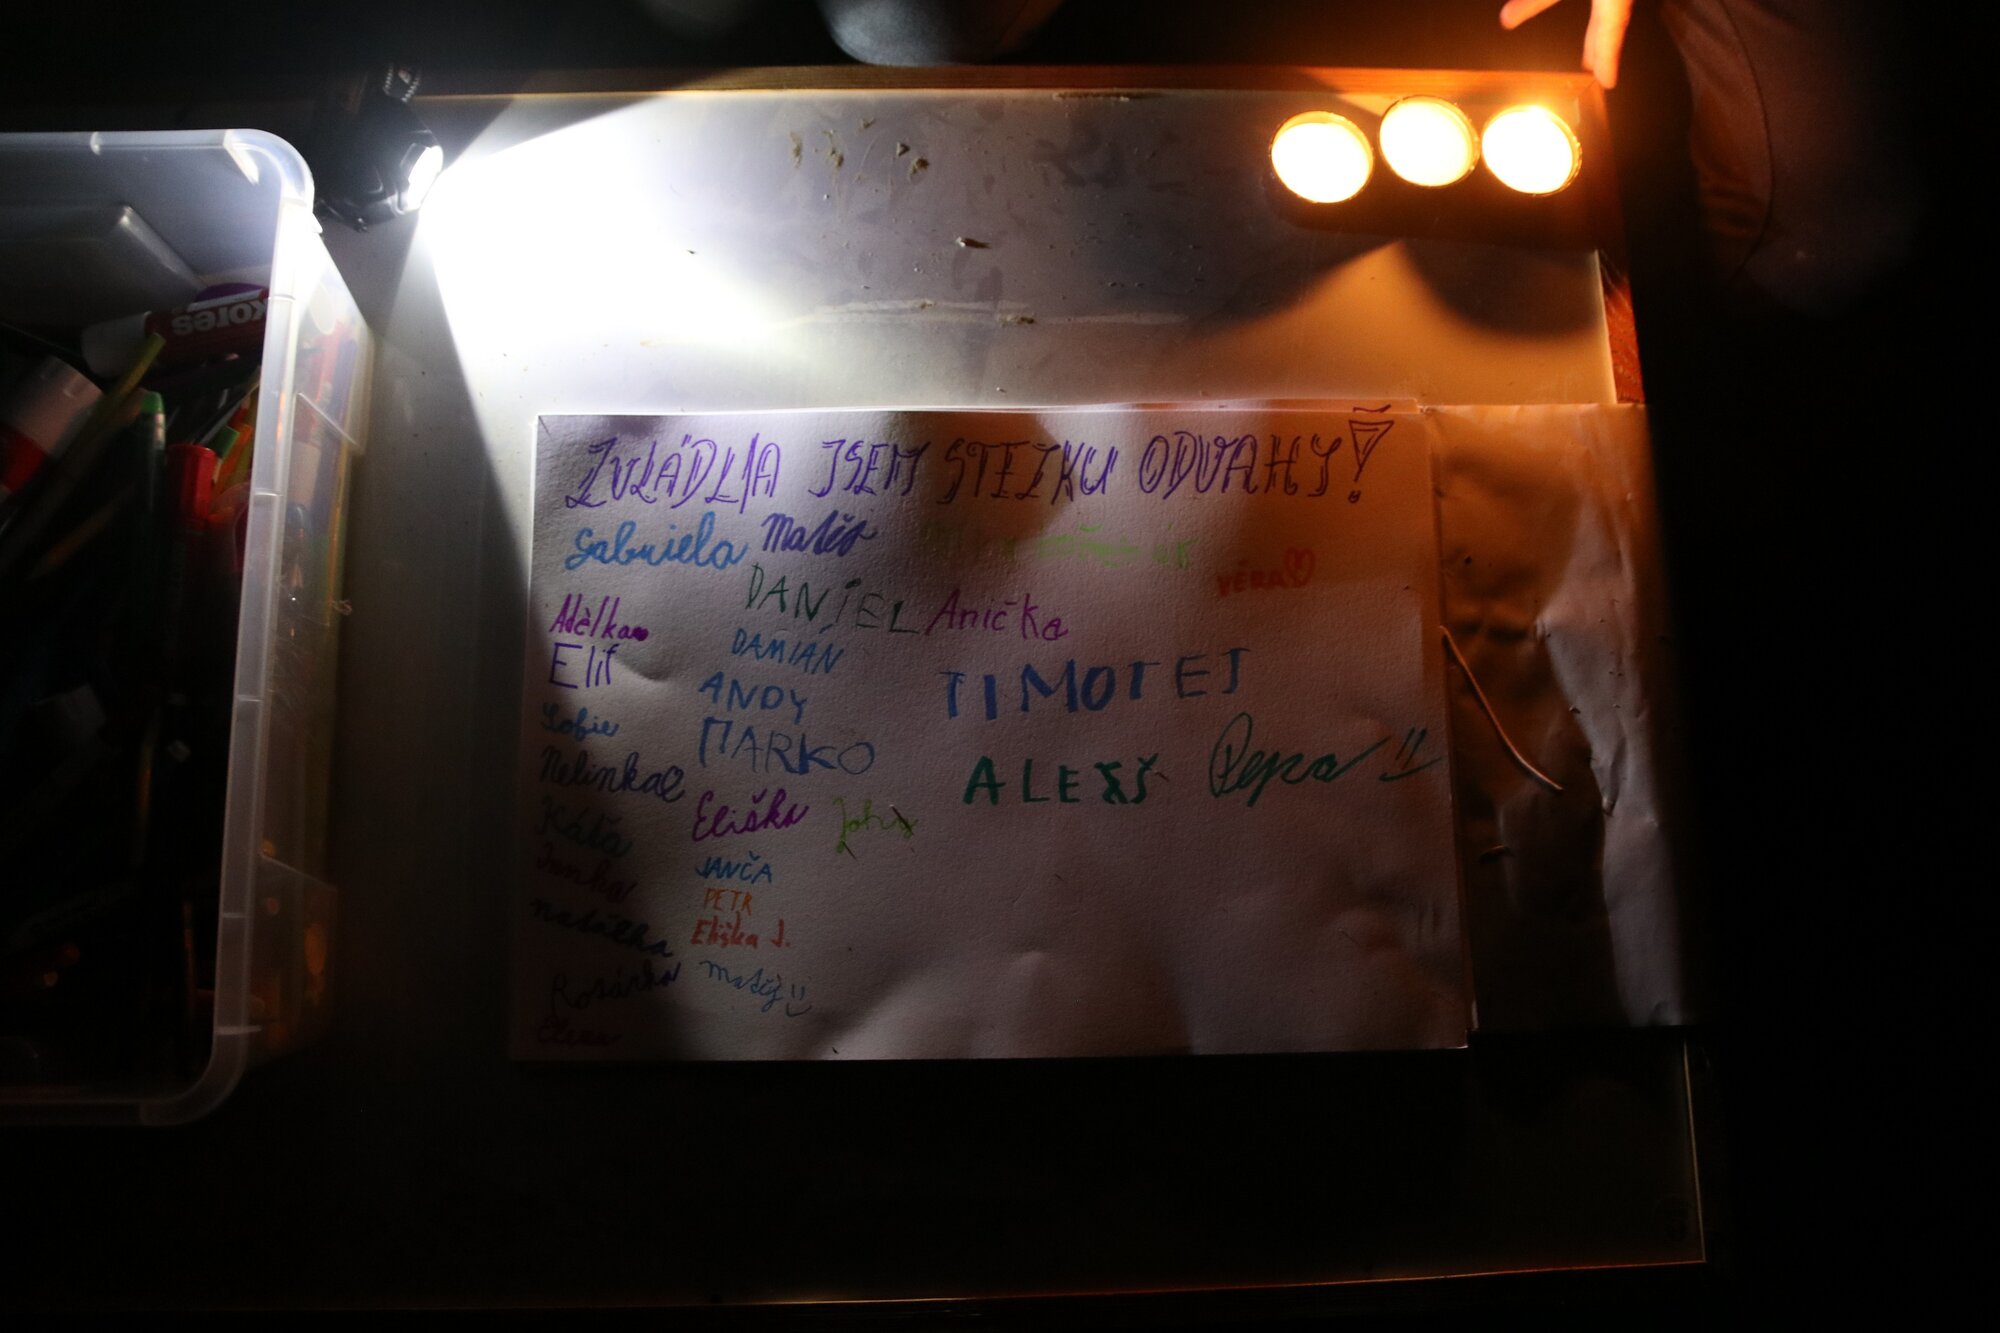 ZVLÁDL/A JSEM STEZKU ODVAHY!
Gabriela
Matěj
VĚRA♡
DANIEL
Anička
Adèlka
DAMIÁN
Elif
TIMOTEJ
ANDY
Sofie
MARKO
Pepa !!
Nelinka
ALEŠ
Eliška
Káťa
JANČA
PETR
Eliška J.
Natálka
Matěj
Rozárka
Kores